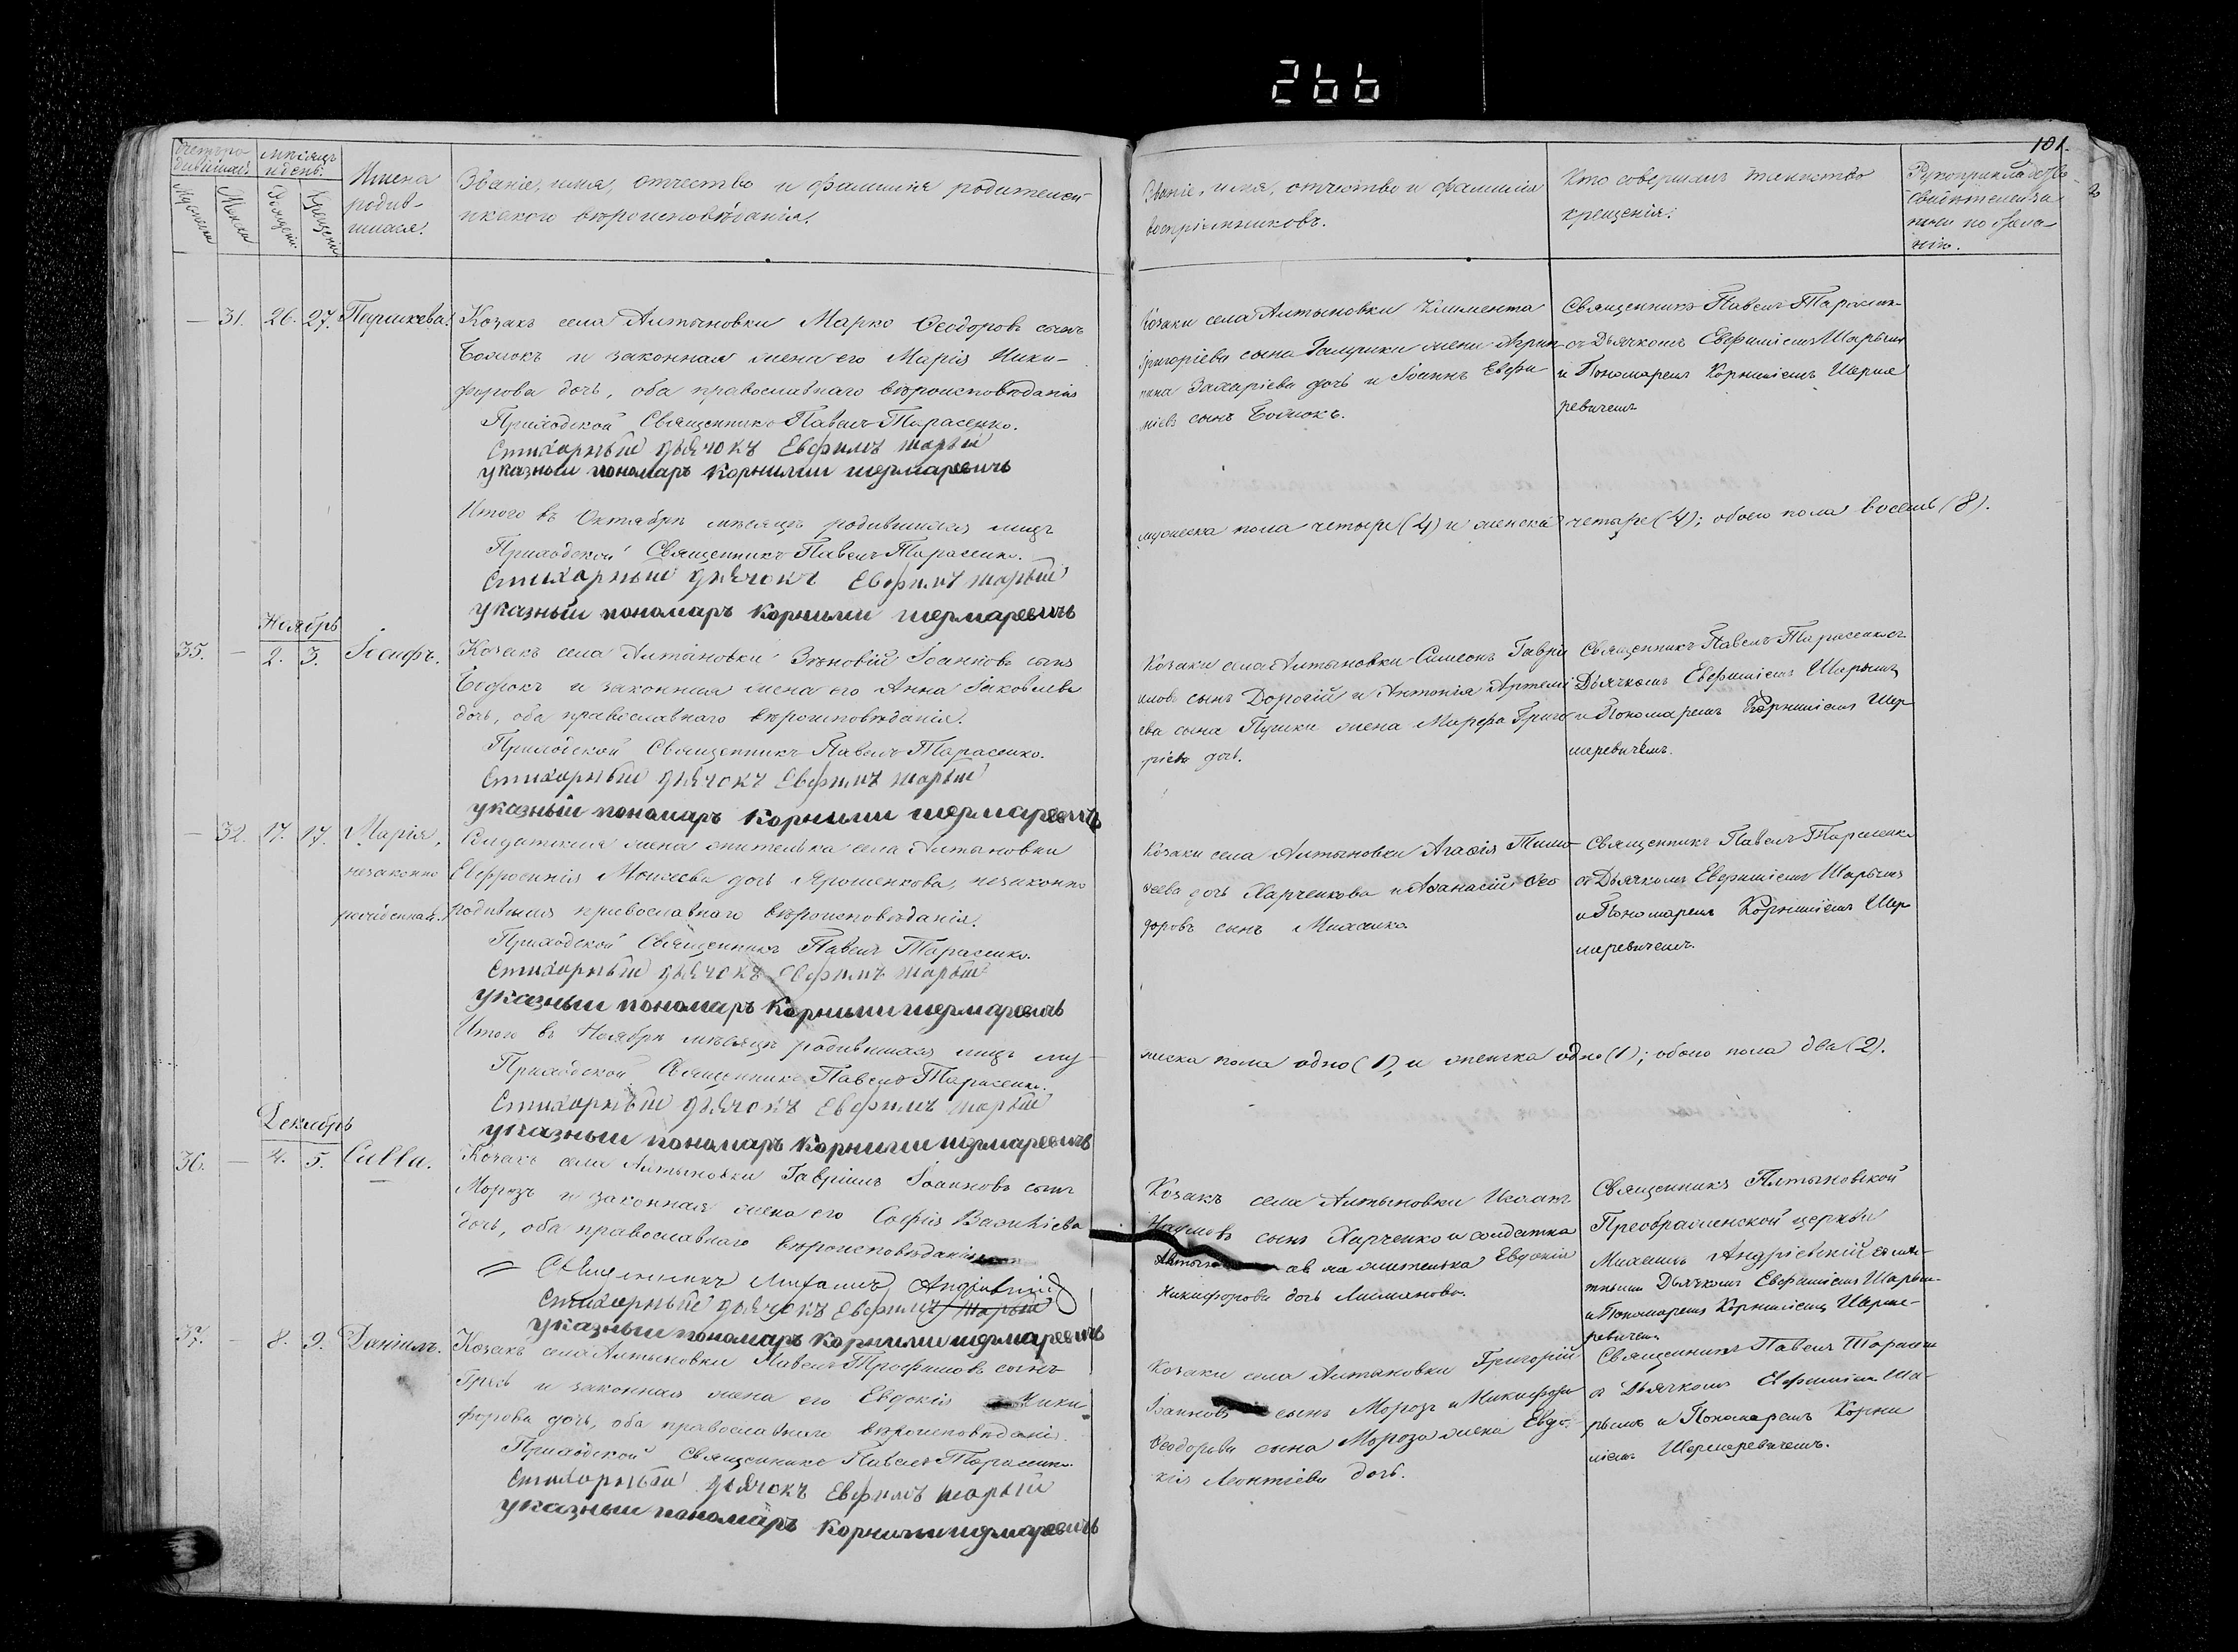 266
101.
Счетъ ро-
дившихся.
мѣсяцъ
и день.
Мужеска
Женска
Рожденія
Крещенія
Имена
родив-
шихся.
Званіе, имя, отчество и фамилія родителей
и какого вѣроисповѣданія.
Званіе, имя, отчество и фамилія
воспріемниковъ.
Кто совершалъ таинство
крещенія.
Рукоприкладство
свидѣтелей за
писи по жела-
нію.
— 31. 26. 27. Параскева.
Козакъ села Алтыновки Марко Ѳеодоровъ сынъ
и законная жена его Марія Ники-
форова дочь, оба православнаго вѣроисповѣданія
Приходской Священникъ Павелъ Тарасенко.
Стихарный дьячокъ Евфимъ Шарый
указный пономаръ Корнилий Шермаревичъ
Козаки села Алтыновки Климента
Григоріева сына жена Агрип-
пина Захаріева дочь и Іоаннъ Евфи
міевъ сынъ
Священникъ Павелъ Тарасенко
съ Дьячкомъ Евфиміемъ Шарымъ
и Пономаремъ Корниліемъ Шерма
ревичемъ
Итого въ Октябрѣ мѣсяцѣ родившихся лицъ
мужеска пола четыре (4) и женска четыре (4); обоего пола восемь (8).
Приходской Священникъ Павелъ Тарасенко.
Стихарный дьячокъ Евфимъ Шарый
указный пономаръ Корнилий Шермаревичъ
Ноябрь
35. — 2. 3. Іосифъ.
Козакъ села Алтыновки Зѣновій Іоанновъ сынъ
и законная жена его Анна Іаковлева
дочь, оба православнаго вѣроисповѣданія.
Приходской Священникъ Павелъ Тарасенко.
Стихарный дьячокъ Евфимъ Шарый
указный пономаръ Корнилий Шермаревичъ
Козаки села Алтыновки Симеонъ Гаври
иловъ сынъ Дорогій и Антонія Артемі
ева сына Пушки жена Марфа Григо
ріева дочь.
Священникъ Павелъ Тарасенко съ
Дьячкомъ Евфиміемъ Шарымъ
и Пономаремъ Корниліемъ Шер
маревичемъ.
— 32. 17. 17. Марія,
незаконно
рожденная.
Солдатская жена жителька села Алтыновки
Евфросинія Моисеева дочь Ярошенкова, незаконно
родившая православнаго вѣроисповѣданія.
Приходской Священникъ Павелъ Тарасенко.
Стихарный дьячокъ Евфимъ Шарый
указный пономаръ Корнилий Шермаревичъ
Козаки села Алтыновки Агафія Тимо-
ѳеева дочь Харченкова и Аѳанасій Ѳео
доровъ сынъ
Священникъ Павелъ Тарасенко
съ Дьячкомъ Евфиміемъ Шарымъ
и Пономаремъ Корниліемъ Шер
маревичемъ.
Итого въ Ноябрѣ мѣсяцѣ родившихся лицъ му-
жеска пола одно (1), и женска одно (1); обоего пола два (2).
Приходской Священникъ Павелъ Тарасенко.
Стихарный дьячокъ Евфимъ Шарый
указный пономаръ Корнилий Шермаревичъ
Декабрь
36. — 4. 5. Савва.
Козакъ села Алтыновки Гавріилъ Іоанновъ сынъ
Морозъ и законная жена его Софія Василіева
дочь, оба православнаго вѣроисповѣданія
Священникъ Михаилъ Андріевскій
Стихарный дьячокъ Евфимъ Шарый
указный пономаръ Корнилий Шермаревичъ
Козакъ села Алтыновки Исаакъ
Наумовъ сынъ Харченко и солдатка
жителька Евдокія
Никифорова дочь Лисманова.
Священникъ Алтыновской
Преображенской церкви
Михаилъ Андріевскій
Дьячкомъ Евфиміемъ Шарым-
и Пономаремъ Корниліемъ Шерма-
ревичемъ
37. — 8. 9. Даніилъ.
Козакъ села Алтыновки Павелъ Трофимовъ сынъ
и законная жена его Евдокія Ники-
форова дочь, оба православнаго вѣроисповѣданія.
Приходской Священникъ Павелъ Тарасенко.
Стихарный дьячокъ Евфимъ Шарый
указный пономаръ Корнилий Шермаревичъ
Козаки села Алтыновки Григорій
Іоанновъ сынъ Морозъ и Никифора
Ѳеодорова сына Мороза жена Евдо-
кія Леонтіева дочь.
Священникъ Павелъ Тарасенко
съ Дьячкомъ Евфиміемъ Ша-
рымъ и Пономаремъ Корни
ліемъ Шермаревичемъ.